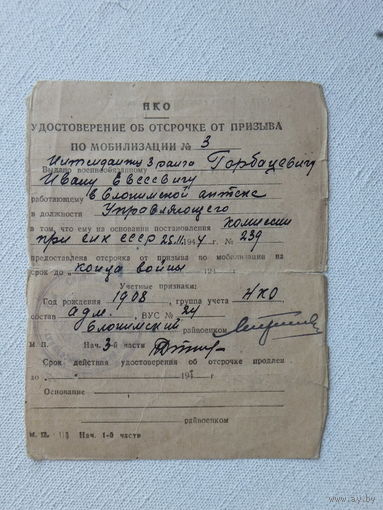 НКО
УДОСТОВЕРЕНИЕ ОБ ОТСРОЧКЕ ОТ ПРИЗЫВА
ПО МОБИЛИЗАЦИИ № 3
Интенданту 3 ранга Горбацевичу
Выдано военнообязанному
Ивану Евсеевичу
работающему в Слонимской аптеке
в должности Управляющего
в том, что ему на основании постановления Комиссии
при СНК СССР 25.II.1944 г. № 239
предоставлена отсрочка от призыва по мобилизации на
срок до конца войны 194
Учетные признаки:
Год рождения 1908, группа учета НКО
состав адм. ВУС № 24
Слонимский райвоенком
М. П. Нач. 3-й части
Срок действия удостоверения об отсрочке продлен
до 194 г.
Основание
райвоенком
Нач. 1-й части
www.ay.by